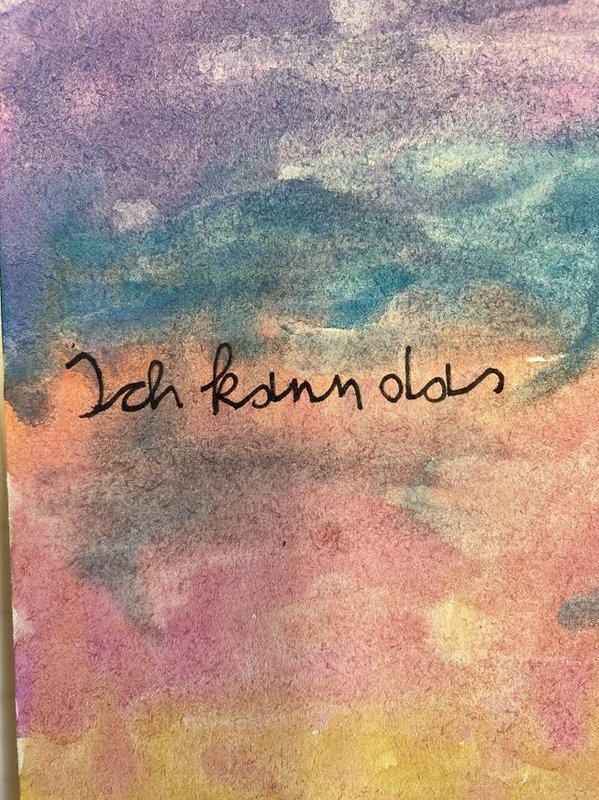 Ich kann das